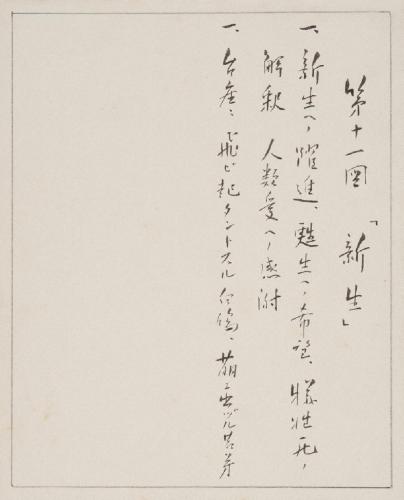 第十一図 「新生」
一、新生ヘノ躍進、甦生ヘノ希望、犠牲死ノ
解釈 人類愛ヘノ感謝
一、台座ニ飛ビ起タントスル白鳩、萌エ出ヅル若芽